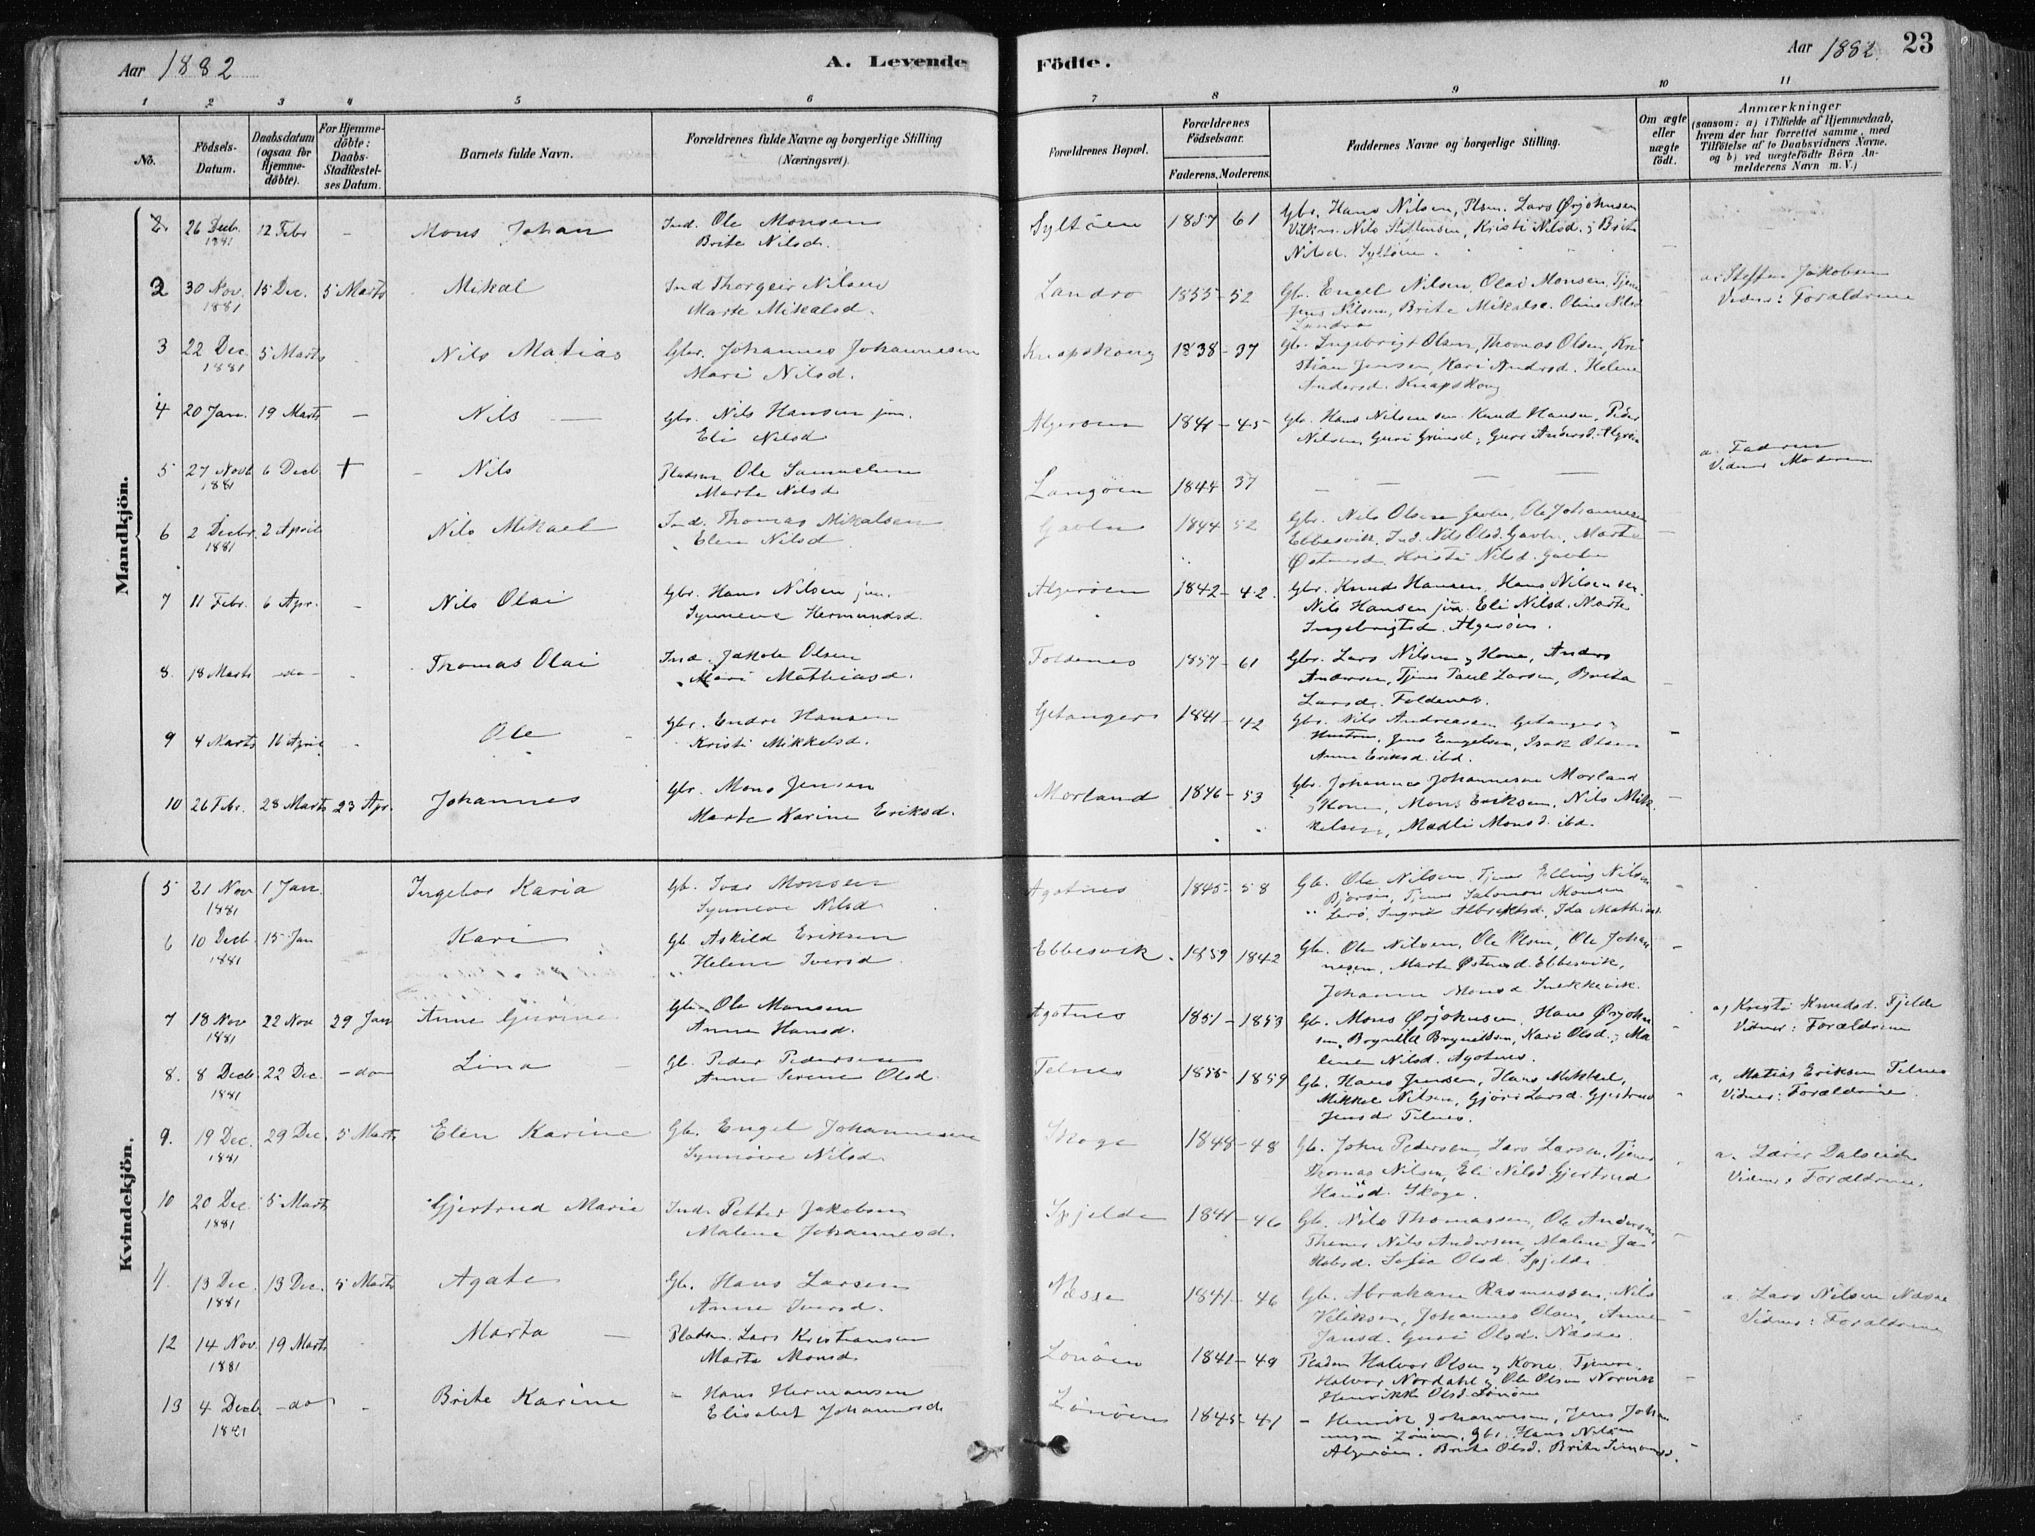 Aar 1882
A. Levende Födte.
Aar 1882. 23
1 2 3 4 5 6 7 8 9 10 11
No.
Födsels-Datum.
Daabsdatum (ogsaa for Hjemmedöbte).
For Hjemmedöbte: Daabs-Stadfæstelses Datum.
Barnets fulde Navn.
Forældrenes fulde Navne og borgerlige Stilling (Næringsvei).
Forældrenes Bopæl.
Forældrenes Födselsaar.
Faderens. Moderens.
Faddernes Navne og borgerlige Stilling.
Om ægte eller uægte födt.
Anmærkninger
(saasom: a) i Tilfælde af Hjemmedaab, hvem der har forrettet samme, med Tilföielse af to Daabsvidners Navne, og b) ved uægtefödte Börn Anmelderens Navn m. V.)
Mandkjön.
2. 26 Decb. 1881 12 Febr – Mons Johan Ind. Ole Monsen Brite Nilsd. Syltöen 1857 – 61 Gbr. Hans Nilsen, Plsm. Lars Ørjohnsen Nils Steffensen, Kristi Nilsd. Brite Nilsd. Syltöen
2 30 Nov. 1881 15 Dec. 5 Marts Mikal Ind Thorgeir Nilsen Marte Mikalsd. Landro 1855 – 52 Gb. Engel Nilsen, Olai Monsen, Tjen Jens Nilsen, Brite Mikalsd. Oline Nilsd Landro a. Steffen Jakobsen Vidner: Forældrene
3 22 Dec. 1881 5 Marts Nils Matias Gbr. Johannes Johannesen Mari Nilsd. Knapskoug 1838 – 37 Gb. Ingebrigt Olsen, Thomas Olsen, Kristian Jensen, Kari Andrsd. Helene Andersd. Knapskoug
4 20 Jan. 19 Marts – Nils – Gbr. Nils Hansen jun. Eli Nilsd Algeröen 1841 – 45 Gb. Hans Nilsen sen. Knud Hansen, Peder Nilsen, Guri Grimsd; Guri Andersd. Algröen
5 27 Novb 1881 6 Decb + Nils Pladsm Ole Samuelsen Marte Nilsd Langöen 1844 37 – – – a. Faderen Vidner Moderen
6 2 Decbr. 1881 2 April Nils Mikael Ind. Thomas Mikalsen Elen Nilsd Gavlen 1844 52 Gbr. Nils Olsen Gavlen, Ole Johannesen Ebbesvik, Ind. Nils Olsd. Gavlen, Marte Østensd. Kristi Nilsd. Gavlen
7 11 Febr. 6 Apr. – Nils Olai Gbr. Hans Nilsen jun. Synneve Hermundsd. Algeröen 1842 – 42. Gbr. Knud Hansen, Hans Nilsen sen. Nils Hansen jun. Eli Nilsd. Marte Ingebrigtsd. Algeröen.
8. 18 Marts –do– Thomas Olai Ind. Jakob Olsen Mari Mathiasd. Foldenes 1857 – 61 Gbr. Lars Nilsen & Kone, Anders Andersen, Tjener Paul Larsen, Brita Larsd. Foldenes.
9 4 Marts 16 April Ole Gbr. Endre Hansen Kristi Mikkelsd. Geitangers 1841 – 42 Gbr. Nils Andreasen Getanger & Hustru, Jens Engelsen, Isak Olsen Anne Eriksd. ibd.
10 26 Febr. 28 Marts 23 Apr. Johannes Gbr. Mons Jensen Marte Karine Eriksd. Morland 1846 – 53 Gbr. Johannes Johannesen Morland & Kone, Mons Eriksen, Nils Mikkelsen, Madli Monsd. ibd.
Kvindekjön.
5 21 Nov 1881 1 Jan. Ingebor Karia Gb. Ivar Monsen Synneve Nilsd. Agotnes 1845 – 58 Gb. Ole Nilsen, Tjener Elling Nilsen Bjoröen, Tjener Salomon Monsen Lerö, Ingrid Albrektsd. Ida Mathiasd.
6 10 Decb. 1881 15 Jan Kari Gb Askild Eriksen Helene Iversd. Ebbesvik. 1859 1842 Gb. Ole Nilsen, Ole Olsen, Ole Johannesen, Marte Østensd Ebbesvik, Johanne Monsd Snekkevik.
7 18 Nov 1881 22 Nov 29 Jan Anne Gurine Gb. Ole Monsen Anne Hansd. Agotnes 1851 – 1853 Gb. Mons Ørjohnsen, Hans Ørjohnsen, Brynild Brynildsen, Kari Olsd. ; Malene Nilsd. Agotnes. a, Kristi Knudsd. Fjelde Vidner: Forældrene
8. 8 Decb 1881 22 Dec. –do– Lina Gb. Peder Pedersen Anne Serine Olsd. Telnes 1855 – 1859 Gb. Hans Jensen, Hans Mikkel, Mikkel Nilsen, Gjöri Larsd. Gjertrud Jensd. Telnes. a, Matias Eriksen Telnes Vidner: Forældrene.
9. 19 Dec. 1881 29 Dec. 5 Marts Elen Karine Gb. Engel Johannesen Synnöve Nilsd. Skoge 1848 – 48 Gb. John Pedersen, Lars Larsen, Tjener Thomas Nilsen, Eli Nilsd. Gjertrud Hansd. Skoge. a. Lærer Dalseide Vidner: Forældrene
10 20 Dec. 1881 5 Marts Gjertrud Marie Ind. Petter Jakobsen Malene Johannesd. Spjelde 1841 – 46 Gb. Nils Thomassen, Ole Andersen, Tjener Nils Andersen, Malene Jakobsd. Sofie Olsd. Spjelde
11. 13 Dec. 1881 13 Dec. 5 Marts Agate Gb. Hans Larsen Anne Iversd. Næsse 1841 – 46 Gb. Abraham Rasmussen, Nils Johannes Olsen, Anne Jansd. Guri Olsd. Næsse. a. Lars Nilsen Næsse Vidner: Forældrene
12 14 Nov. 1881 19 Marts Marta – Pladsm. Lars Kristiansen Marta Monsd. Lönöen 1841 – 49 Pladsm Halvor Olsen & Kone. Tjenere Halvor Nordahl & Ole Olsen Norvik Henrikke Olsd. Lönöen
13 4 Decb 1881 –do– Brite Karine – Hans Hermansen Elisabet Johannesd. Lönöen 1845 – 41 – Henrik Johannesen, Jens Johannesen Lönöen, Gbr. Hans Nilsen Algeröen. Brite Olsd. Brite Simonsd.